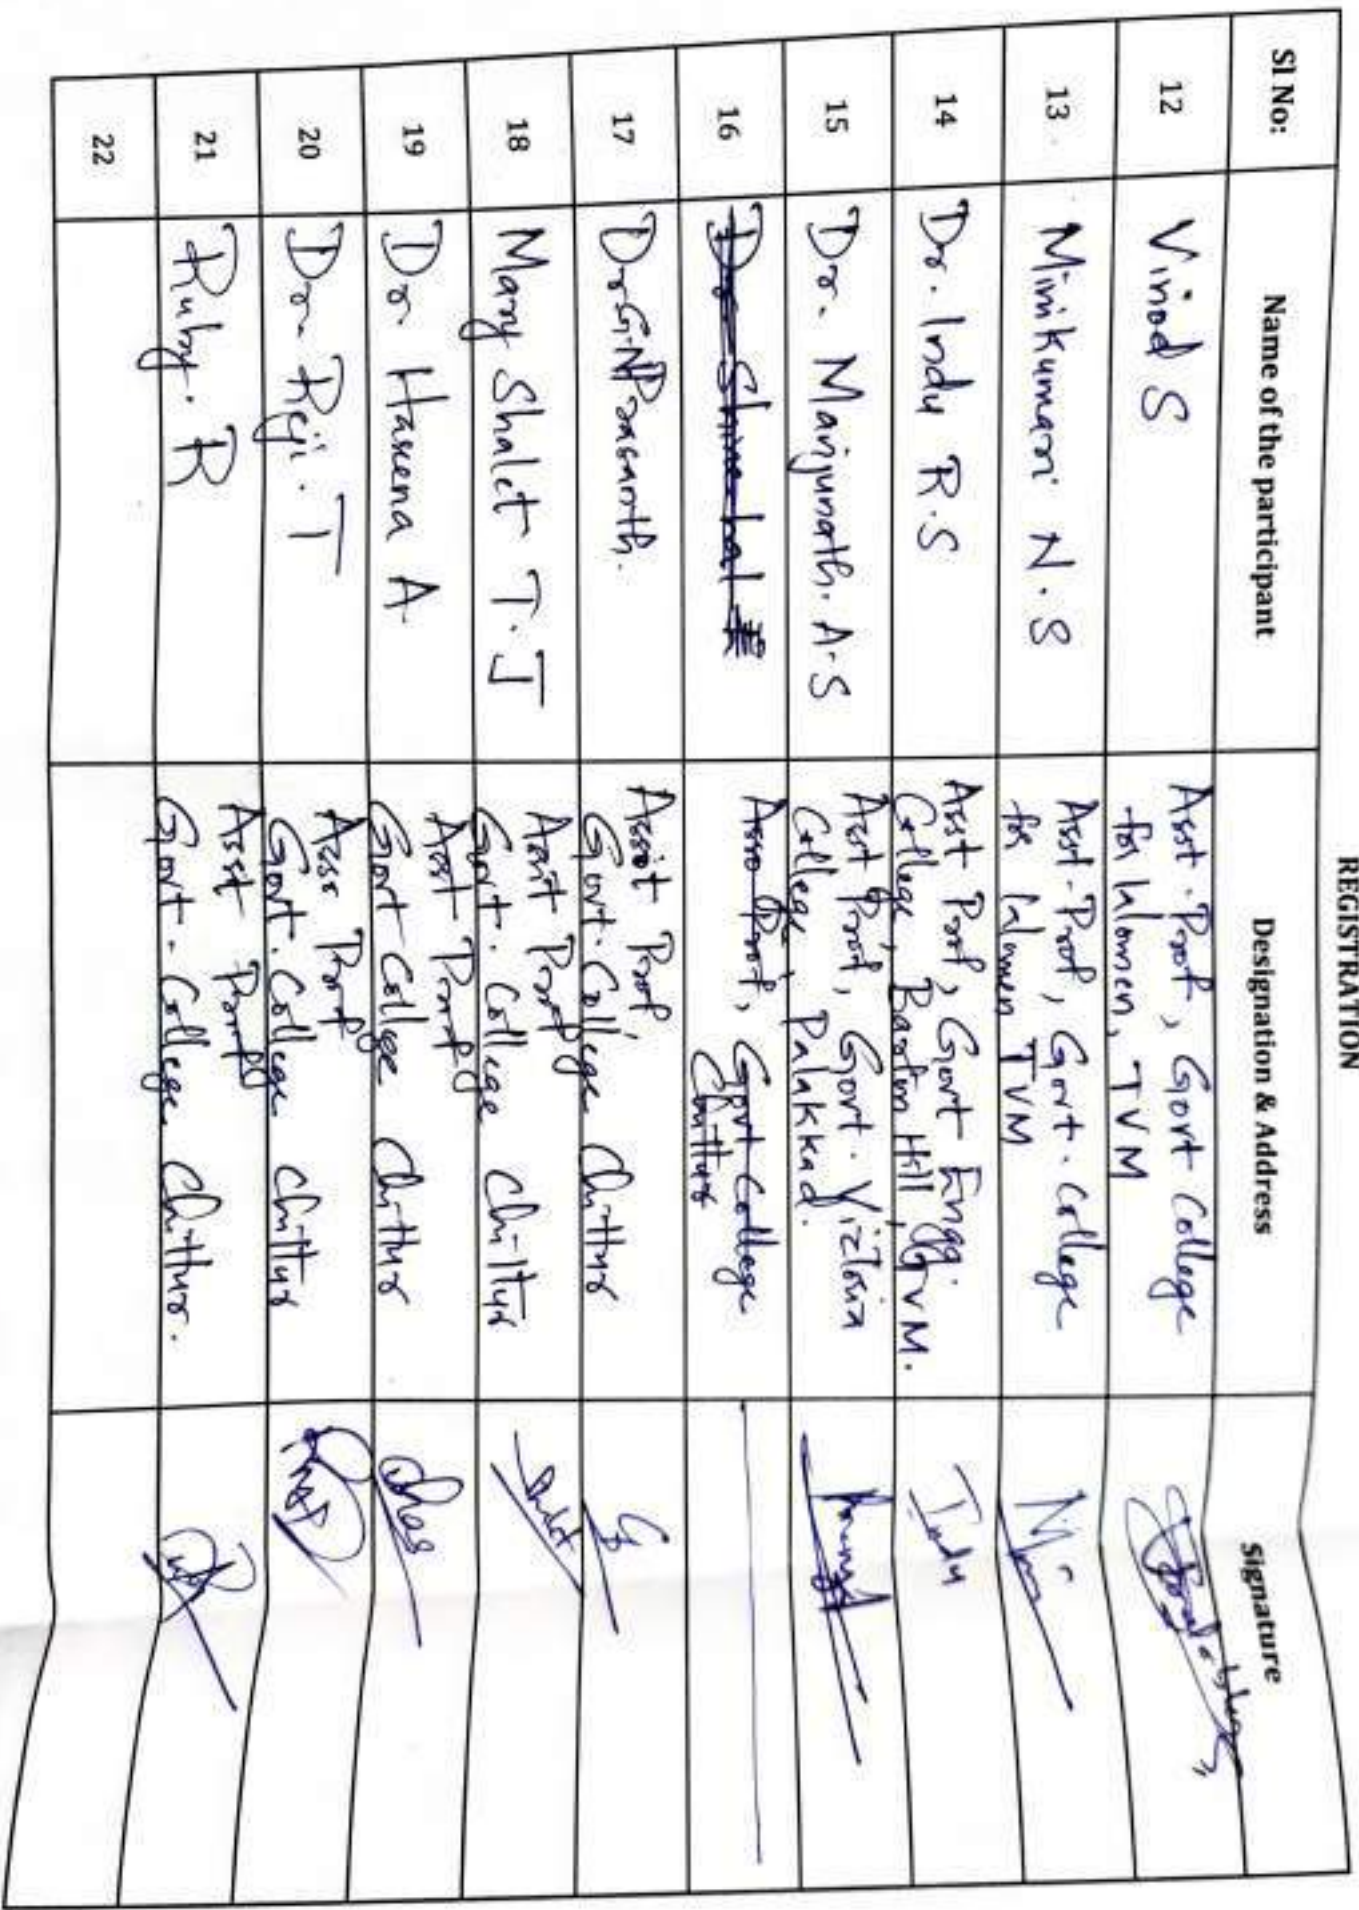 REGISTRATION
Sl No:
Name of the participant
Designation & Address
Signature
12
Vinod S
Asst. Prof, Govt College
for Women, TVM
13
Minikumari N.S
Asst. Prof, Govt. College
for Women TVM
14
Dr. Indu R.S
Asst Prof, Govt Engg.
College, Barton Hill, TVM.
Indu
15
Dr. Manjunath. A.S
Asst Prof, Govt. Victoria
College, Palakkad.
16
Asso Prof, Govt College
Chittur
17
Dr G.N Prasanth.
Assit Prof,
Govt. College Chittur
18
Mary Shalet T.J
Assit Prof
Govt. College Chittur
19
Dr Haseena A
Asst Prof
Govt College Chittur
20
Dr. Reji. T
Asso Prof
Govt. College Chittur
21
Ruby. R
Asst Prof
Govt - College Chittur.
22